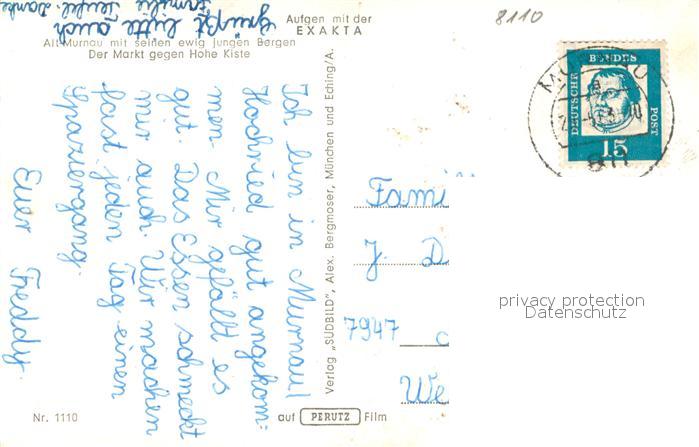 Grüßt bitte auch
Familie
Danke
Alt-Murnau mit seinen ewig jungen Bergen
Der Markt gegen Hohe Kiste
Aufgen mit der
EXAKTA
8110
Ich bin in Murnau/
Hochried gut angekom=
men. Mir gefällt es
gut. Das Essen schmeckt
mir auch. Wir machen
fast jeden Tag einen
Spaziergang.
Euer Freddy.
Verlag „SÜDBILD", Alex. Bergmoser, München und Eching/A.
DEUTSCHE
BUNDES
POST
15
811
Fami
J. D
7947
We
privacy protection
Datenschutz
Nr. 1110
auf PERUTZ Film